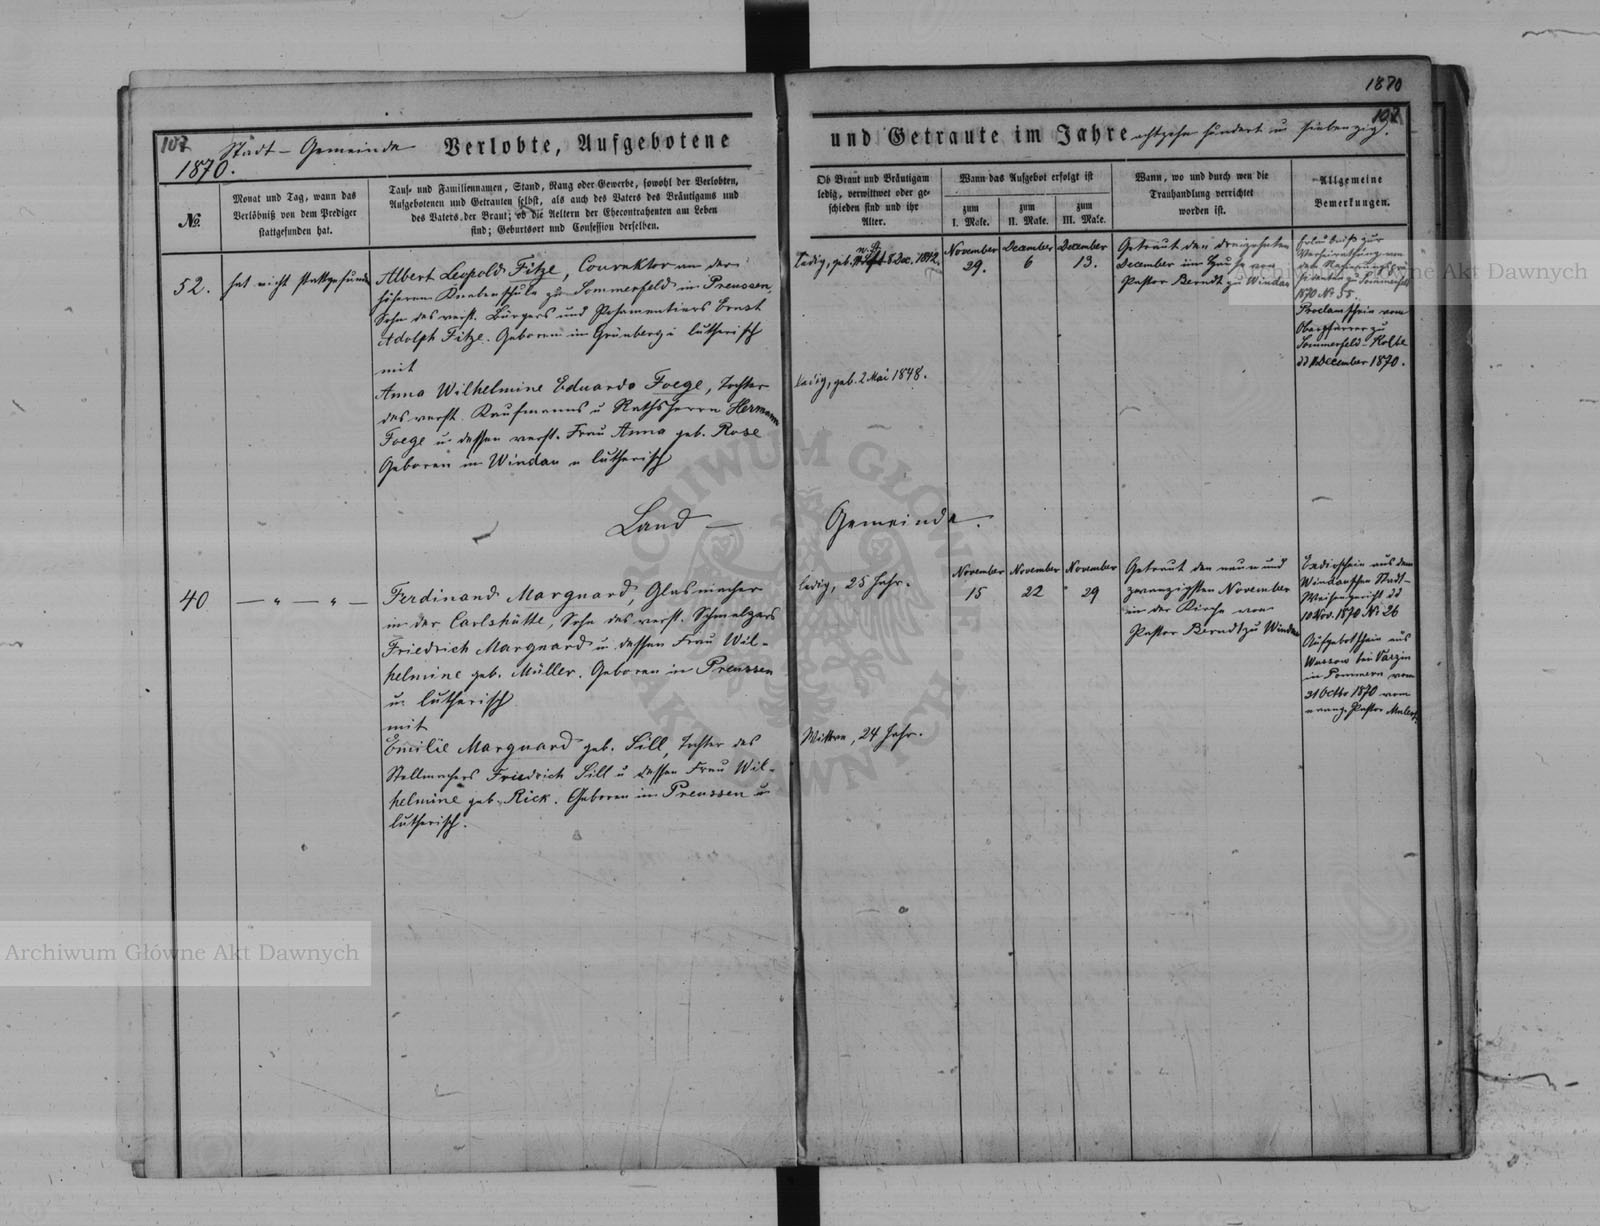 1870
107
107
Stadt - Gemeinde Verlobte, Aufgebotene und Getraute im Jahre achtzehn hundert u siebenzig.
1870.
№
Monat und Tag, wann das
Verlöbniß von dem Prediger
stattgefunden hat.
Tauf- und Familiennamen, Stand, Rang oder Gewerbe, sowohl der Verlobten,
Aufgebotenen und Getrauten selbst, als auch des Vaters des Bräutigams und
des Vaters der Braut; ob die Aeltern der Ehecontrahenten am Leben
sind; Geburtsort und Confession derselben.
Ob Braut und Bräutigam
ledig, verwittwet oder ge-
schieden sind und ihr
Alter.
Wann das Aufgebot erfolgt ist
zum
I. Male.
zum
II. Male.
zum
III. Male.
Wann, wo und durch wen die
Trauhandlung verrichtet
worden ist.
Allgemeine
Bemerkungen.
52.
hat nicht stattgefunden
Albert Leopold Fitze, Conrektor an der
höheren Knabenschule zu Sommerfeld in Preussen,
Sohn des verst. Bürgers und Posamentiers Ernst
Adolph Fitze. Geboren in Grünberg u lutherisch
mit
Anna Wilhelmine Eduarde Foege, Tochter
des verst. Kaufmanns u Rathsherrn Hermann
Foege u dessen verst. Frau Anna geb. Rose
Geboren in Windau u lutherisch
ledig, geb. 8 Dec. 1842.
ledig, geb. 2 Mai 1848.
November
29.
December
6
December
13.
Getraut den dreizehnten
December im Hause von
Pastor Berndt zu Windau
Erlaubniß zur
Verheirathung von
1870 № 55.
Proclamschein vom
Oberpfarrer zu
Sommerfeld - Kolbe
December 1870.
Land - Gemeinde.
40
— " — " —
Ferdinand Marquard, Glasmacher
in der Carlshütte, Sohn des verst. Schmelzers
Friedrich Marquard u. dessen Frau Wil-
helmine geb. Müller. Geboren in Preussen
u. lutherisch
mit
Emilie Marquard geb. Sill, Tochter des
Stellmachers Friedrich Sill u dessen Frau Wil-
helmine geb. Rick. Geboren in Preussen u
lutherisch.
ledig, 25 Jahr.
Wittwe, 24 Jahr.
November
15
November
22
November
29
Getraut den neun und
zwanzigsten November
in der Kirche von
Pastor Berndt zu Windau
Ledigschein aus dem
Windauschen Stadt-
Waisengericht dd
10 Nov. 1870 № 26
Aufgebotschein aus
Wussow bei Varzin
in Pommern vom
31 Octbr 1870 vom
evang. Pastor
Archiwum Główne Akt Dawnych
Archiwum Główne Akt Dawnych
ARCHIWUM GŁÓWNE AKT DAWNYCH